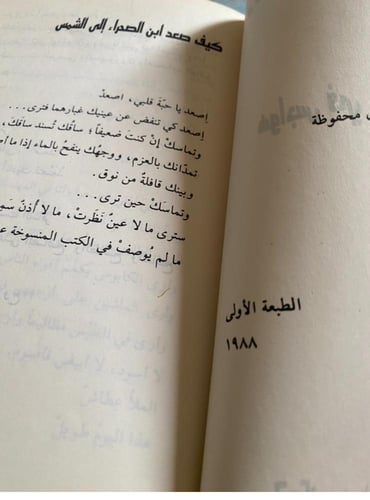 كيف صعد ابن الصحراء إلى الشمس
إصعد يا حبّة قلبي، اصعدْ
إصعد كي تنفض عن عينيك غبارهما فترى...
وتماسكْ إنْ كنتَ ضعيفاً؛ ساقُك تُسند ساقَك،
تمدّانك بالعزم، ووجهُك ينفحُ بالماء إذا ما
وبينك قافلةٌ من نوق.
وتماسَكْ حين ترى...
سترى ما لا عينٌ نَظَرتْ، ما لا أُذنٌ
ما لم يُوصفْ في الكتب المنسوخة
محفوظة
الطبعة الأولى
١٩٨٨